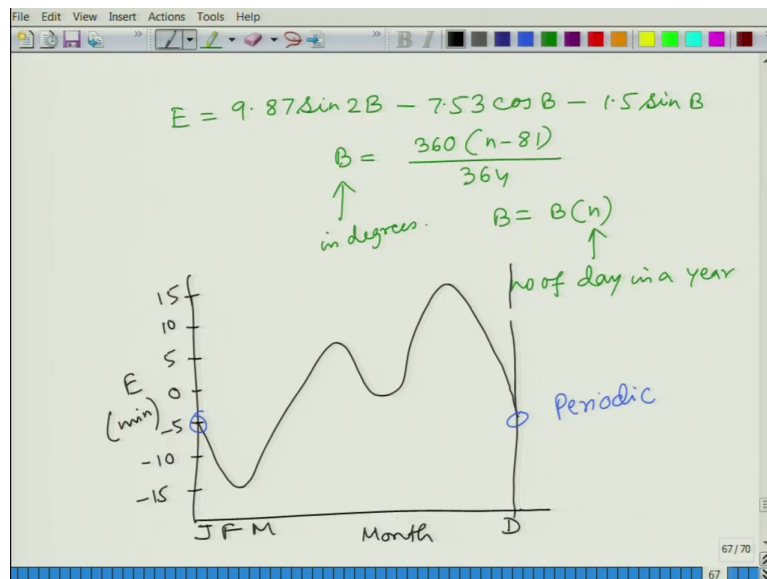 File Edit View Insert Actions Tools Help
B I
E = 9.87 sin 2B − 7.53 cos B − 1.5 sin B
B = 360 (n-81) / 364
in degrees.
B = B(n)
no of day in a year
15
10
5
0
-5
-10
-15
E
(min)
Periodic
J F M Month D
67 / 70
67